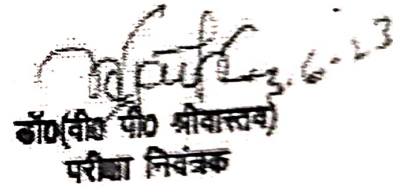 3.6.23
डॉ0(वी0 पी0 श्रीवास्तव)
परीक्षा नियंत्रक